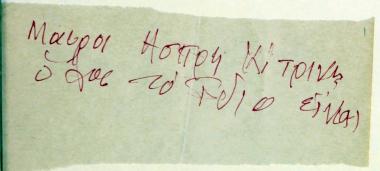 Μαυροι Ασπρη Κίτρινη
όλοι τό ίδιο είναι